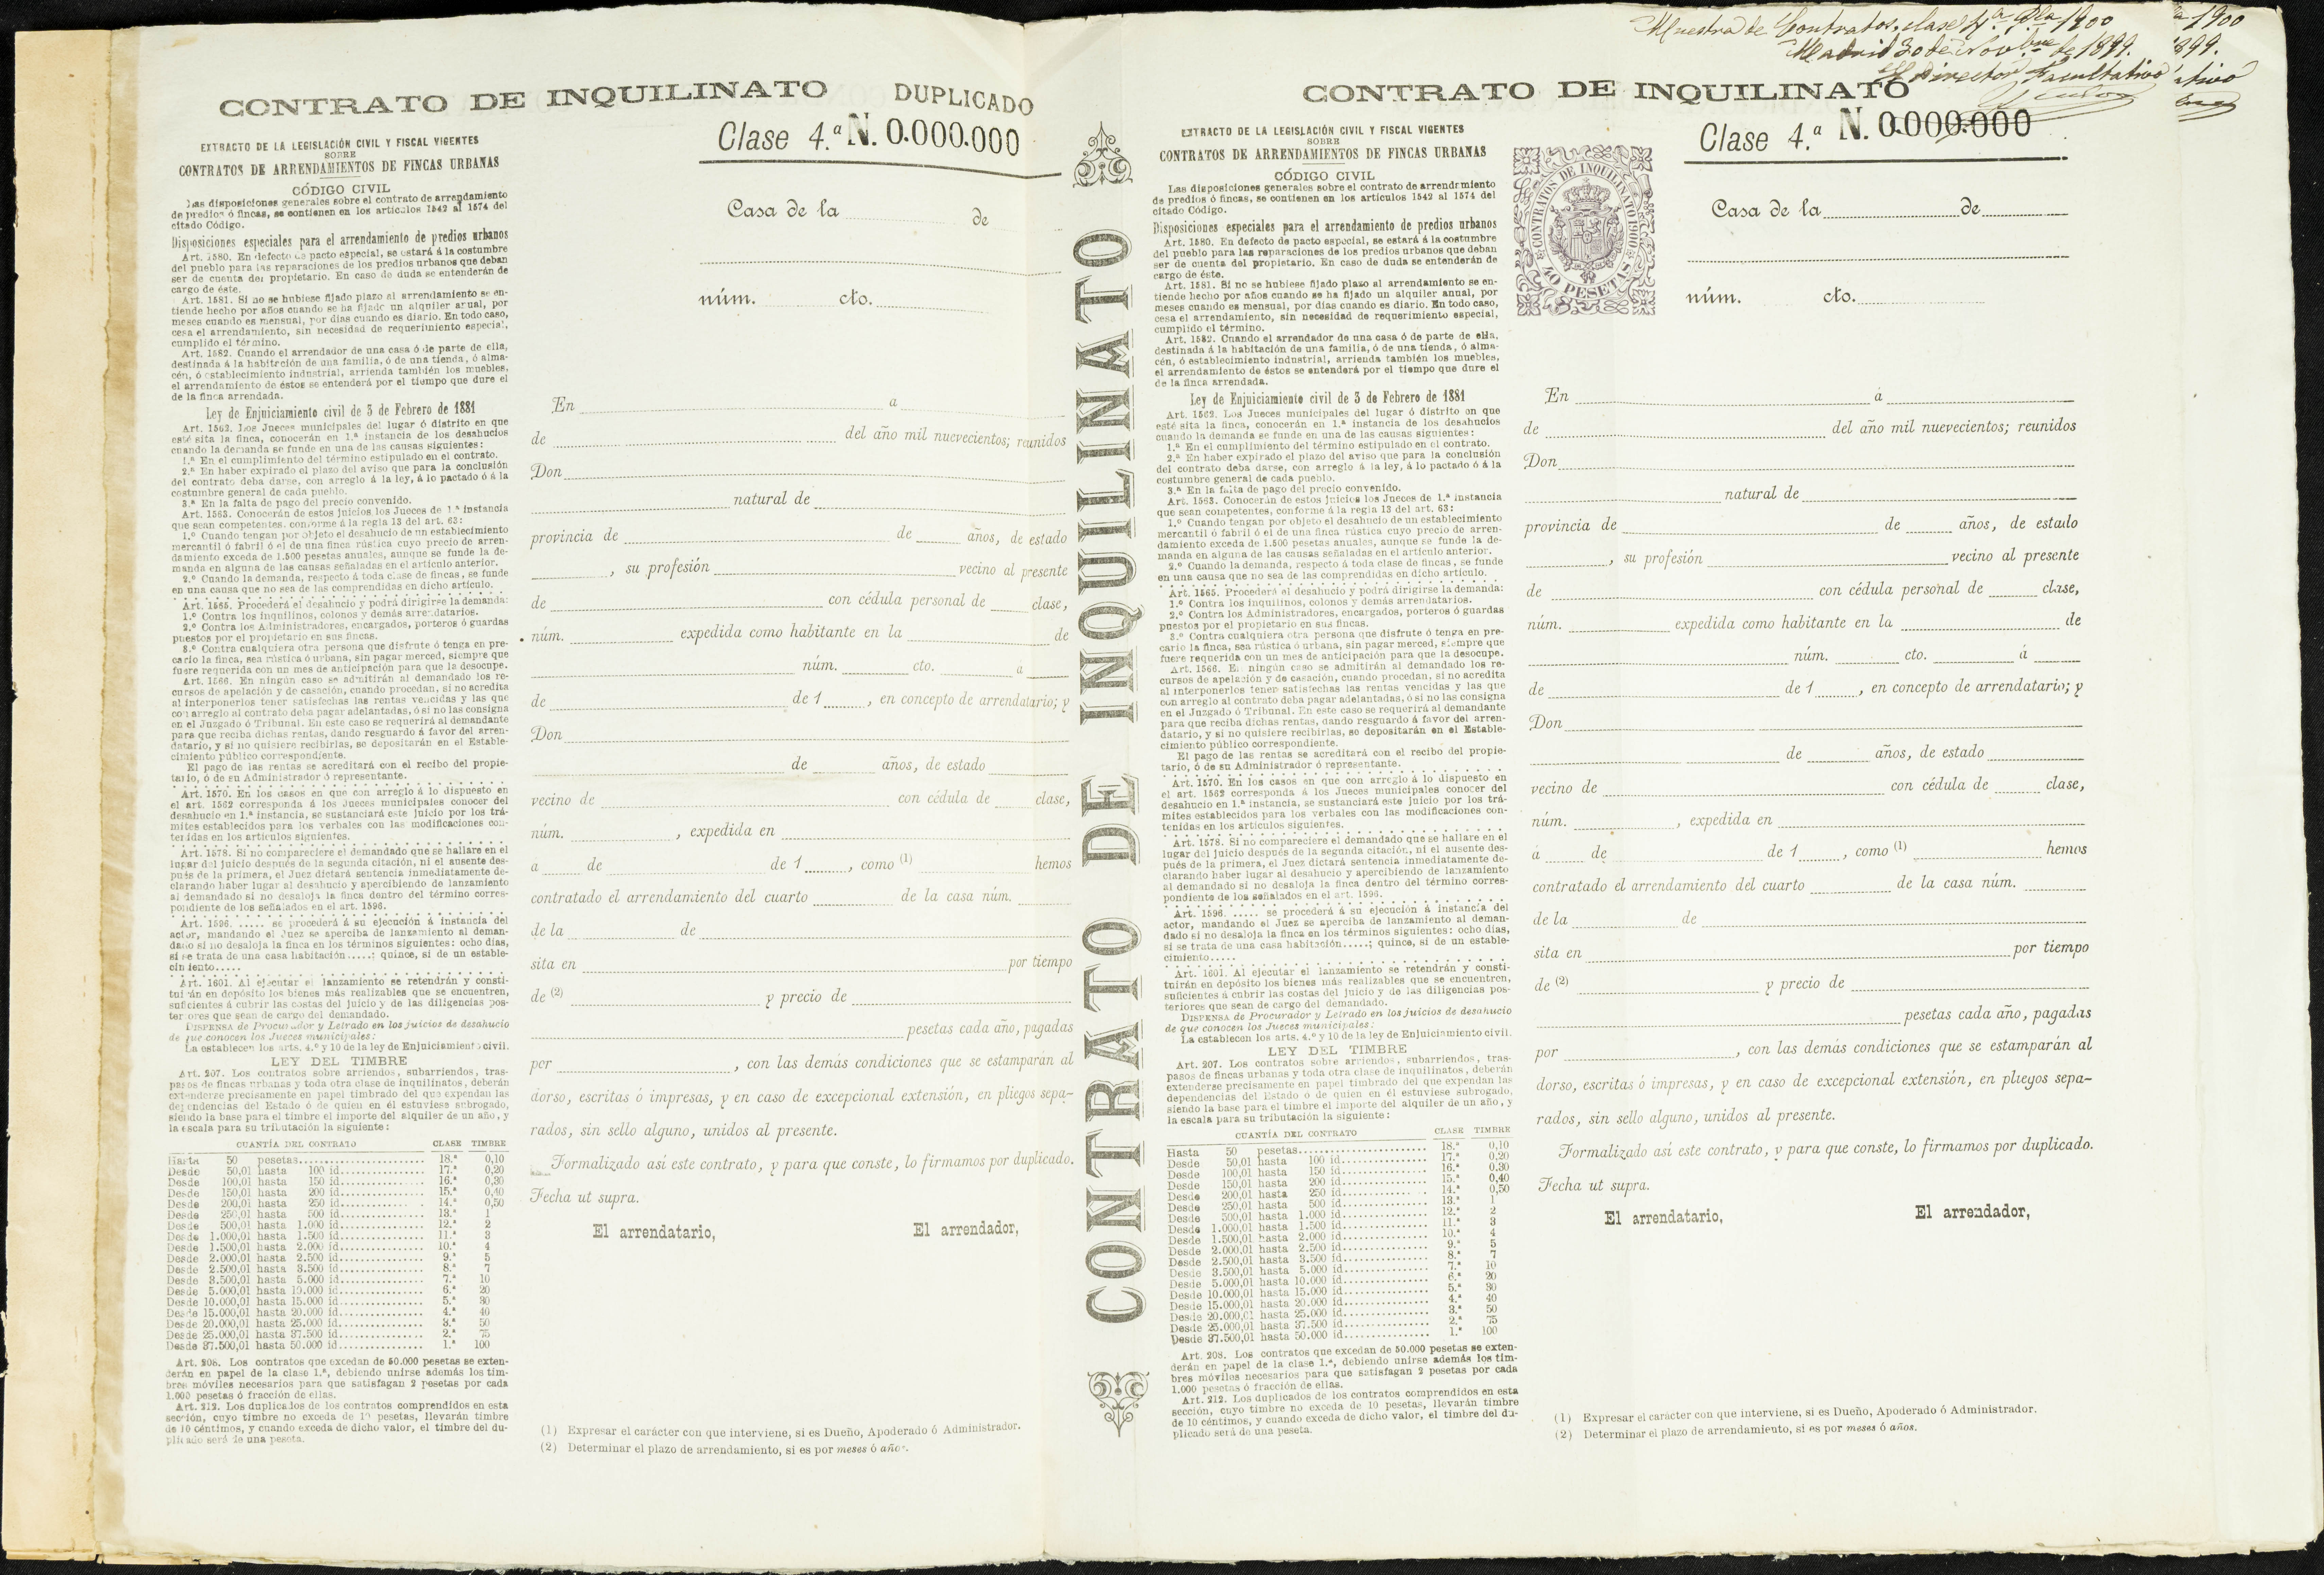 CONTRATO DE INQUILINATO
DUPLICADO
Clase 4.ª N. 0.000.000
EXTRACTO DE LA LEGISLACIÓN CIVIL Y FISCAL VIGENTES
SOBRE
CONTRATOS DE ARRENDAMIENTOS DE FINCAS URBANAS
CÓDIGO CIVIL
Las disposiciones generales sobre el contrato de arrendamiento
de predios ó fincas, se contienen en los artículos 1542 al 1574 del
citado Código.
Disposiciones especiales para el arrendamiento de predios urbanos
Art. 1580. En defecto de pacto especial, se estará á la costumbre
del pueblo para las reparaciones de los predios urbanos que deban
ser de cuenta del propietario. En caso de duda se entenderán de
cargo de éste.
Art. 1581. Si no se hubiese fijado plazo al arrendamiento se en-
tiende hecho por años cuando se ha fijado un alquiler anual, por
meses cuando es mensual, por días cuando es diario. En todo caso,
cesa el arrendamiento, sin necesidad de requerimiento especial,
cumplido el término.
Art. 1582. Cuando el arrendador de una casa ó de parte de ella,
destinada á la habitación de una familia, ó de una tienda, ó alma-
cén, ó establecimiento industrial, arrienda también los muebles,
el arrendamiento de éstos se entenderá por el tiempo que dure el
de la finca arrendada.
Ley de Enjuiciamiento civil de 3 de Febrero de 1881
Art. 1562. Los Jueces municipales del lugar ó distrito en que
esté sita la finca, conocerán en 1.ª instancia de los desahucios
cuando la demanda se funde en una de las causas siguientes:
1.ª En el cumplimiento del término estipulado en el contrato.
2.ª En haber expirado el plazo del aviso que para la conclusión
del contrato deba darse, con arreglo á la ley, á lo pactado ó á la
costumbre general de cada pueblo.
3.ª En la falta de pago del precio convenido.
Art. 1563. Conocerán de estos juicios los Jueces de 1.ª instancia
que sean competentes, conforme á la regla 13 del art. 63:
1.º Cuando tengan por objeto el desahucio de un establecimiento
mercantil ó fabril ó el de una finca rústica cuyo precio de arren-
damiento exceda de 1.500 pesetas anuales, aunque se funde la de-
manda en alguna de las causas señaladas en el artículo anterior.
2.º Cuando la demanda, respecto á toda clase de fincas, se funde
en una causa que no sea de las comprendidas en dicho artículo.
Art. 1565. Procederá el desahucio y podrá dirigirse la demanda:
1.º Contra los inquilinos, colonos y demás arrendatarios.
2.º Contra los Administradores, encargados, porteros ó guardas
puestos por el propietario en sus fincas.
3.º Contra cualquiera otra persona que disfrute ó tenga en pre-
cario la finca, sea rústica ó urbana, sin pagar merced, siempre que
fuere requerida con un mes de anticipación para que la desocupe.
Art. 1566. En ningún caso se admitirán al demandado los re-
cursos de apelación y de casación, cuando procedan, si no acredita
al interponerlos tener satisfechas las rentas vencidas y las que
con arreglo al contrato deba pagar adelantadas, ó si no las consigna
en el Juzgado ó Tribunal. En este caso se requerirá al demandante
para que reciba dichas rentas, dando resguardo á favor del arren-
datario, y si no quisiere recibirlas, se depositarán en el Estable-
cimiento público correspondiente.
El pago de las rentas se acreditará con el recibo del propie-
tario, ó de su Administrador ó representante.
Art. 1570. En los casos en que con arreglo á lo dispuesto en
el art. 1562 corresponda á los Jueces municipales conocer del
desahucio en 1.ª instancia, se sustanciará este juicio por los trá-
mites establecidos para los verbales con las modificaciones con-
tenidas en los artículos siguientes.
Art. 1578. Si no compareciere el demandado que se hallare en el
lugar del juicio después de la segunda citación, ni el ausente des-
pués de la primera, el Juez dictará sentencia inmediatamente de-
clarando haber lugar al desahucio y apercibiendo de lanzamiento
al demandado si no desaloja la finca dentro del término corres-
pondiente de los señalados en el art. 1596.
Art. 1596. ..... se procederá á su ejecución á instancia del
actor, mandando el Juez se aperciba de lanzamiento al deman-
dado si no desaloja la finca en los términos siguientes: ocho días,
si se trata de una casa habitación.....; quince, si de un estable-
cimiento.....
Art. 1601. Al ejecutar el lanzamiento se retendrán y consti-
tuirán en depósito los bienes más realizables que se encuentren,
suficientes á cubrir las costas del juicio y de las diligencias pos-
teriores que sean de cargo del demandado.
DISPENSA de Procurador y Letrado en los juicios de desahucio
de que conocen los Jueces municipales:
La establecen los arts. 4.º y 10 de la ley de Enjuiciamiento civil.
LEY DEL TIMBRE
Art. 207. Los contratos sobre arriendos, subarriendos, tras-
pasos de fincas urbanas y toda otra clase de inquilinatos, deberán
extenderse precisamente en papel timbrado del que expendan las
dependencias del Estado ó de quien en él estuviese subrogado,
siendo la base para el timbre el importe del alquiler de un año, y
la escala para su tributación la siguiente:
CUANTÍA DEL CONTRATO CLASE TIMBRE
Hasta 50 pesetas 18.ª 0,10
Desde 50,01 hasta 100 id. 17.ª 0,20
Desde 100,01 hasta 150 id. 16.ª 0,30
Desde 150,01 hasta 200 id. 15.ª 0,40
Desde 200,01 hasta 250 id. 14.ª 0,50
Desde 250,01 hasta 500 id. 13.ª 1
Desde 500,01 hasta 1.000 id. 12.ª 2
Desde 1.000,01 hasta 1.500 id. 11.ª 3
Desde 1.500,01 hasta 2.000 id. 10.ª 4
Desde 2.000,01 hasta 2.500 id. 9.ª 5
Desde 2.500,01 hasta 3.500 id. 8.ª 7
Desde 3.500,01 hasta 5.000 id. 7.ª 10
Desde 5.000,01 hasta 10.000 id. 6.ª 20
Desde 10.000,01 hasta 15.000 id. 5.ª 30
Desde 15.000,01 hasta 20.000 id. 4.ª 40
Desde 20.000,01 hasta 25.000 id. 3.ª 50
Desde 25.000,01 hasta 37.500 id. 2.ª 75
Desde 37.500,01 hasta 50.000 id. 1.ª 100
Art. 208. Los contratos que excedan de 50.000 pesetas se exten-
derán en papel de la clase 1.ª, debiendo unirse además los tim-
bres móviles necesarios para que satisfagan 2 pesetas por cada
1.000 pesetas ó fracción de ellas.
Art. 212. Los duplicados de los contratos comprendidos en esta
sección, cuyo timbre no exceda de 10 pesetas, llevarán timbre
de 10 céntimos, y cuando exceda de dicho valor, el timbre del du-
plicado será de una peseta.
Casa de la de
núm. cto.
En a
de del año mil nuevecientos; reunidos
Don
natural de
provincia de de años, de estado
, su profesión vecino al presente
de con cédula personal de clase,
núm. expedida como habitante en la de
núm. cto. á
de de 1 , en concepto de arrendatario; y
Don
de años, de estado
vecino de con cédula de clase,
núm. , expedida en
a de de 1 , como (1) hemos
contratado el arrendamiento del cuarto de la casa núm.
de la de
sita en por tiempo
de (2) y precio de
pesetas cada año, pagadas
por , con las demás condiciones que se estamparán al
dorso, escritas ó impresas, y en caso de excepcional extensión, en pliegos sepa-
rados, sin sello alguno, unidos al presente.
Formalizado así este contrato, y para que conste, lo firmamos por duplicado.
Fecha ut supra.
El arrendatario, El arrendador,
(1) Expresar el carácter con que interviene, si es Dueño, Apoderado ó Administrador.
(2) Determinar el plazo de arrendamiento, si es por meses ó años.
CONTRATO DE INQUILINATO
Muestra de Contratos, clase 4.ª Pla 1900
Madrid 30 de Novbre de 1899.
El Director Facultativo
1900
899.
ativo
CONTRATO DE INQUILINATO
Clase 4.ª N. 0.000.000
EXTRACTO DE LA LEGISLACIÓN CIVIL Y FISCAL VIGENTES
SOBRE
CONTRATOS DE ARRENDAMIENTOS DE FINCAS URBANAS
CÓDIGO CIVIL
Las disposiciones generales sobre el contrato de arrendamiento
de predios ó fincas, se contienen en los artículos 1542 al 1574 del
citado Código.
Disposiciones especiales para el arrendamiento de predios urbanos
Art. 1580. En defecto de pacto especial, se estará á la costumbre
del pueblo para las reparaciones de los predios urbanos que deban
ser de cuenta del propietario. En caso de duda se entenderán de
cargo de éste.
Art. 1581. Si no se hubiese fijado plazo al arrendamiento se en-
tiende hecho por años cuando se ha fijado un alquiler anual, por
meses cuando es mensual, por días cuando es diario. En todo caso,
cesa el arrendamiento, sin necesidad de requerimiento especial,
cumplido el término.
Art. 1582. Cuando el arrendador de una casa ó de parte de ella,
destinada á la habitación de una familia, ó de una tienda, ó alma-
cén, ó establecimiento industrial, arrienda también los muebles,
el arrendamiento de éstos se entenderá por el tiempo que dure el
de la finca arrendada.
Ley de Enjuiciamiento civil de 3 de Febrero de 1881
Art. 1562. Los Jueces municipales del lugar ó distrito en que
esté sita la finca, conocerán en 1.ª instancia de los desahucios
cuando la demanda se funde en una de las causas siguientes:
1.ª En el cumplimiento del término estipulado en el contrato.
2.ª En haber expirado el plazo del aviso que para la conclusión
del contrato deba darse, con arreglo á la ley, á lo pactado ó á la
costumbre general de cada pueblo.
3.ª En la falta de pago del precio convenido.
Art. 1563. Conocerán de estos juicios los Jueces de 1.ª instancia
que sean competentes, conforme á la regla 13 del art. 63:
1.º Cuando tengan por objeto el desahucio de un establecimiento
mercantil ó fabril ó el de una finca rústica cuyo precio de arren-
damiento exceda de 1.500 pesetas anuales, aunque se funde la de-
manda en alguna de las causas señaladas en el artículo anterior.
2.º Cuando la demanda, respecto á toda clase de fincas, se funde
en una causa que no sea de las comprendidas en dicho artículo.
Art. 1565. Procederá el desahucio y podrá dirigirse la demanda:
1.º Contra los inquilinos, colonos y demás arrendatarios.
2.º Contra los Administradores, encargados, porteros ó guardas
puestos por el propietario en sus fincas.
3.º Contra cualquiera otra persona que disfrute ó tenga en pre-
cario la finca, sea rústica ó urbana, sin pagar merced, siempre que
fuere requerida con un mes de anticipación para que la desocupe.
Art. 1566. En ningún caso se admitirán al demandado los re-
cursos de apelación y de casación, cuando procedan, si no acredita
al interponerlos tener satisfechas las rentas vencidas y las que
con arreglo al contrato deba pagar adelantadas, ó si no las consigna
en el Juzgado ó Tribunal. En este caso se requerirá al demandante
para que reciba dichas rentas, dando resguardo á favor del arren-
datario, y si no quisiere recibirlas, se depositarán en el Estable-
cimiento público correspondiente.
El pago de las rentas se acreditará con el recibo del propie-
tario, ó de su Administrador ó representante.
Art. 1570. En los casos en que con arreglo á lo dispuesto en
el art. 1562 corresponda á los Jueces municipales conocer del
desahucio en 1.ª instancia, se sustanciará este juicio por los trá-
mites establecidos para los verbales con las modificaciones con-
tenidas en los artículos siguientes.
Art. 1578. Si no compareciere el demandado que se hallare en el
lugar del juicio después de la segunda citación, ni el ausente des-
pués de la primera, el Juez dictará sentencia inmediatamente de-
clarando haber lugar al desahucio y apercibiendo de lanzamiento
al demandado si no desaloja la finca dentro del término corres-
pondiente de los señalados en el art. 1596.
Art. 1596. ..... se procederá á su ejecución á instancia del
actor, mandando el Juez se aperciba de lanzamiento al deman-
dado si no desaloja la finca en los términos siguientes: ocho días,
si se trata de una casa habitación.....; quince, si de un estable-
cimiento.....
Art. 1601. Al ejecutar el lanzamiento se retendrán y consti-
tuirán en depósito los bienes más realizables que se encuentren,
suficientes á cubrir las costas del juicio y de las diligencias pos-
teriores que sean de cargo del demandado.
DISPENSA de Procurador y Letrado en los juicios de desahucio
de que conocen los Jueces municipales:
La establecen los arts. 4.º y 10 de la ley de Enjuiciamiento civil.
LEY DEL TIMBRE
Art. 207. Los contratos sobre arriendos, subarriendos, tras-
pasos de fincas urbanas y toda otra clase de inquilinatos, deberán
extenderse precisamente en papel timbrado del que expendan las
dependencias del Estado o de quien en él estuviese subrogado,
siendo la base para el timbre el importe del alquiler de un año, y
la escala para su tributación la siguiente:
CUANTÍA DEL CONTRATO CLASE TIMBRE
Hasta 50 pesetas 18.ª 0,10
Desde 50,01 hasta 100 id. 17.ª 0,20
Desde 100,01 hasta 150 id. 16.ª 0,30
Desde 150,01 hasta 200 id. 15.ª 0,40
Desde 200,01 hasta 250 id. 14.ª 0,50
Desde 250,01 hasta 500 id. 13.ª 1
Desde 500,01 hasta 1.000 id. 12.ª 2
Desde 1.000,01 hasta 1.500 id. 11.ª 3
Desde 1.500,01 hasta 2.000 id. 10.ª 4
Desde 2.000,01 hasta 2.500 id. 9.ª 5
Desde 2.500,01 hasta 3.500 id. 8.ª 7
Desde 3.500,01 hasta 5.000 id. 7.ª 10
Desde 5.000,01 hasta 10.000 id. 6.ª 20
Desde 10.000,01 hasta 15.000 id. 5.ª 30
Desde 15.000,01 hasta 20.000 id. 4.ª 40
Desde 20.000,01 hasta 25.000 id. 3.ª 50
Desde 25.000,01 hasta 37.500 id. 2.ª 75
Desde 37.500,01 hasta 50.000 id. 1.ª 100
Art. 208. Los contratos que excedan de 50.000 pesetas se exten-
derán en papel de la clase 1.ª, debiendo unirse además los tim-
bres móviles necesarios para que satisfagan 2 pesetas por cada
1.000 pesetas ó fracción de ellas.
Art. 212. Los duplicados de los contratos comprendidos en esta
sección, cuyo timbre no exceda de 10 pesetas, llevarán timbre
de 10 céntimos, y cuando exceda de dicho valor, el timbre del du-
plicado será de una peseta.
CONTRATOS DE INQUILINATO 1900
40 PESETAS
Casa de la de
núm. cto.
En á
de del año mil nuevecientos; reunidos
Don
natural de
provincia de de años, de estado
, su profesión vecino al presente
de con cédula personal de clase,
núm. expedida como habitante en la de
núm. cto. á
de de 1 , en concepto de arrendatario; y
Don
de años, de estado
vecino de con cédula de clase,
núm. , expedida en
á de de 1 , como (1) hemos
contratado el arrendamiento del cuarto de la casa núm.
de la de
sita en por tiempo
de (2) y precio de
pesetas cada año, pagadas
por , con las demás condiciones que se estamparán al
dorso, escritas ó impresas, y en caso de excepcional extensión, en pliegos sepa-
rados, sin sello alguno, unidos al presente.
Formalizado así este contrato, y para que conste, lo firmamos por duplicado.
Fecha ut supra.
El arrendatario, El arrendador,
(1) Expresar el carácter con que interviene, si es Dueño, Apoderado ó Administrador.
(2) Determinar el plazo de arrendamiento, si es por meses ó años.